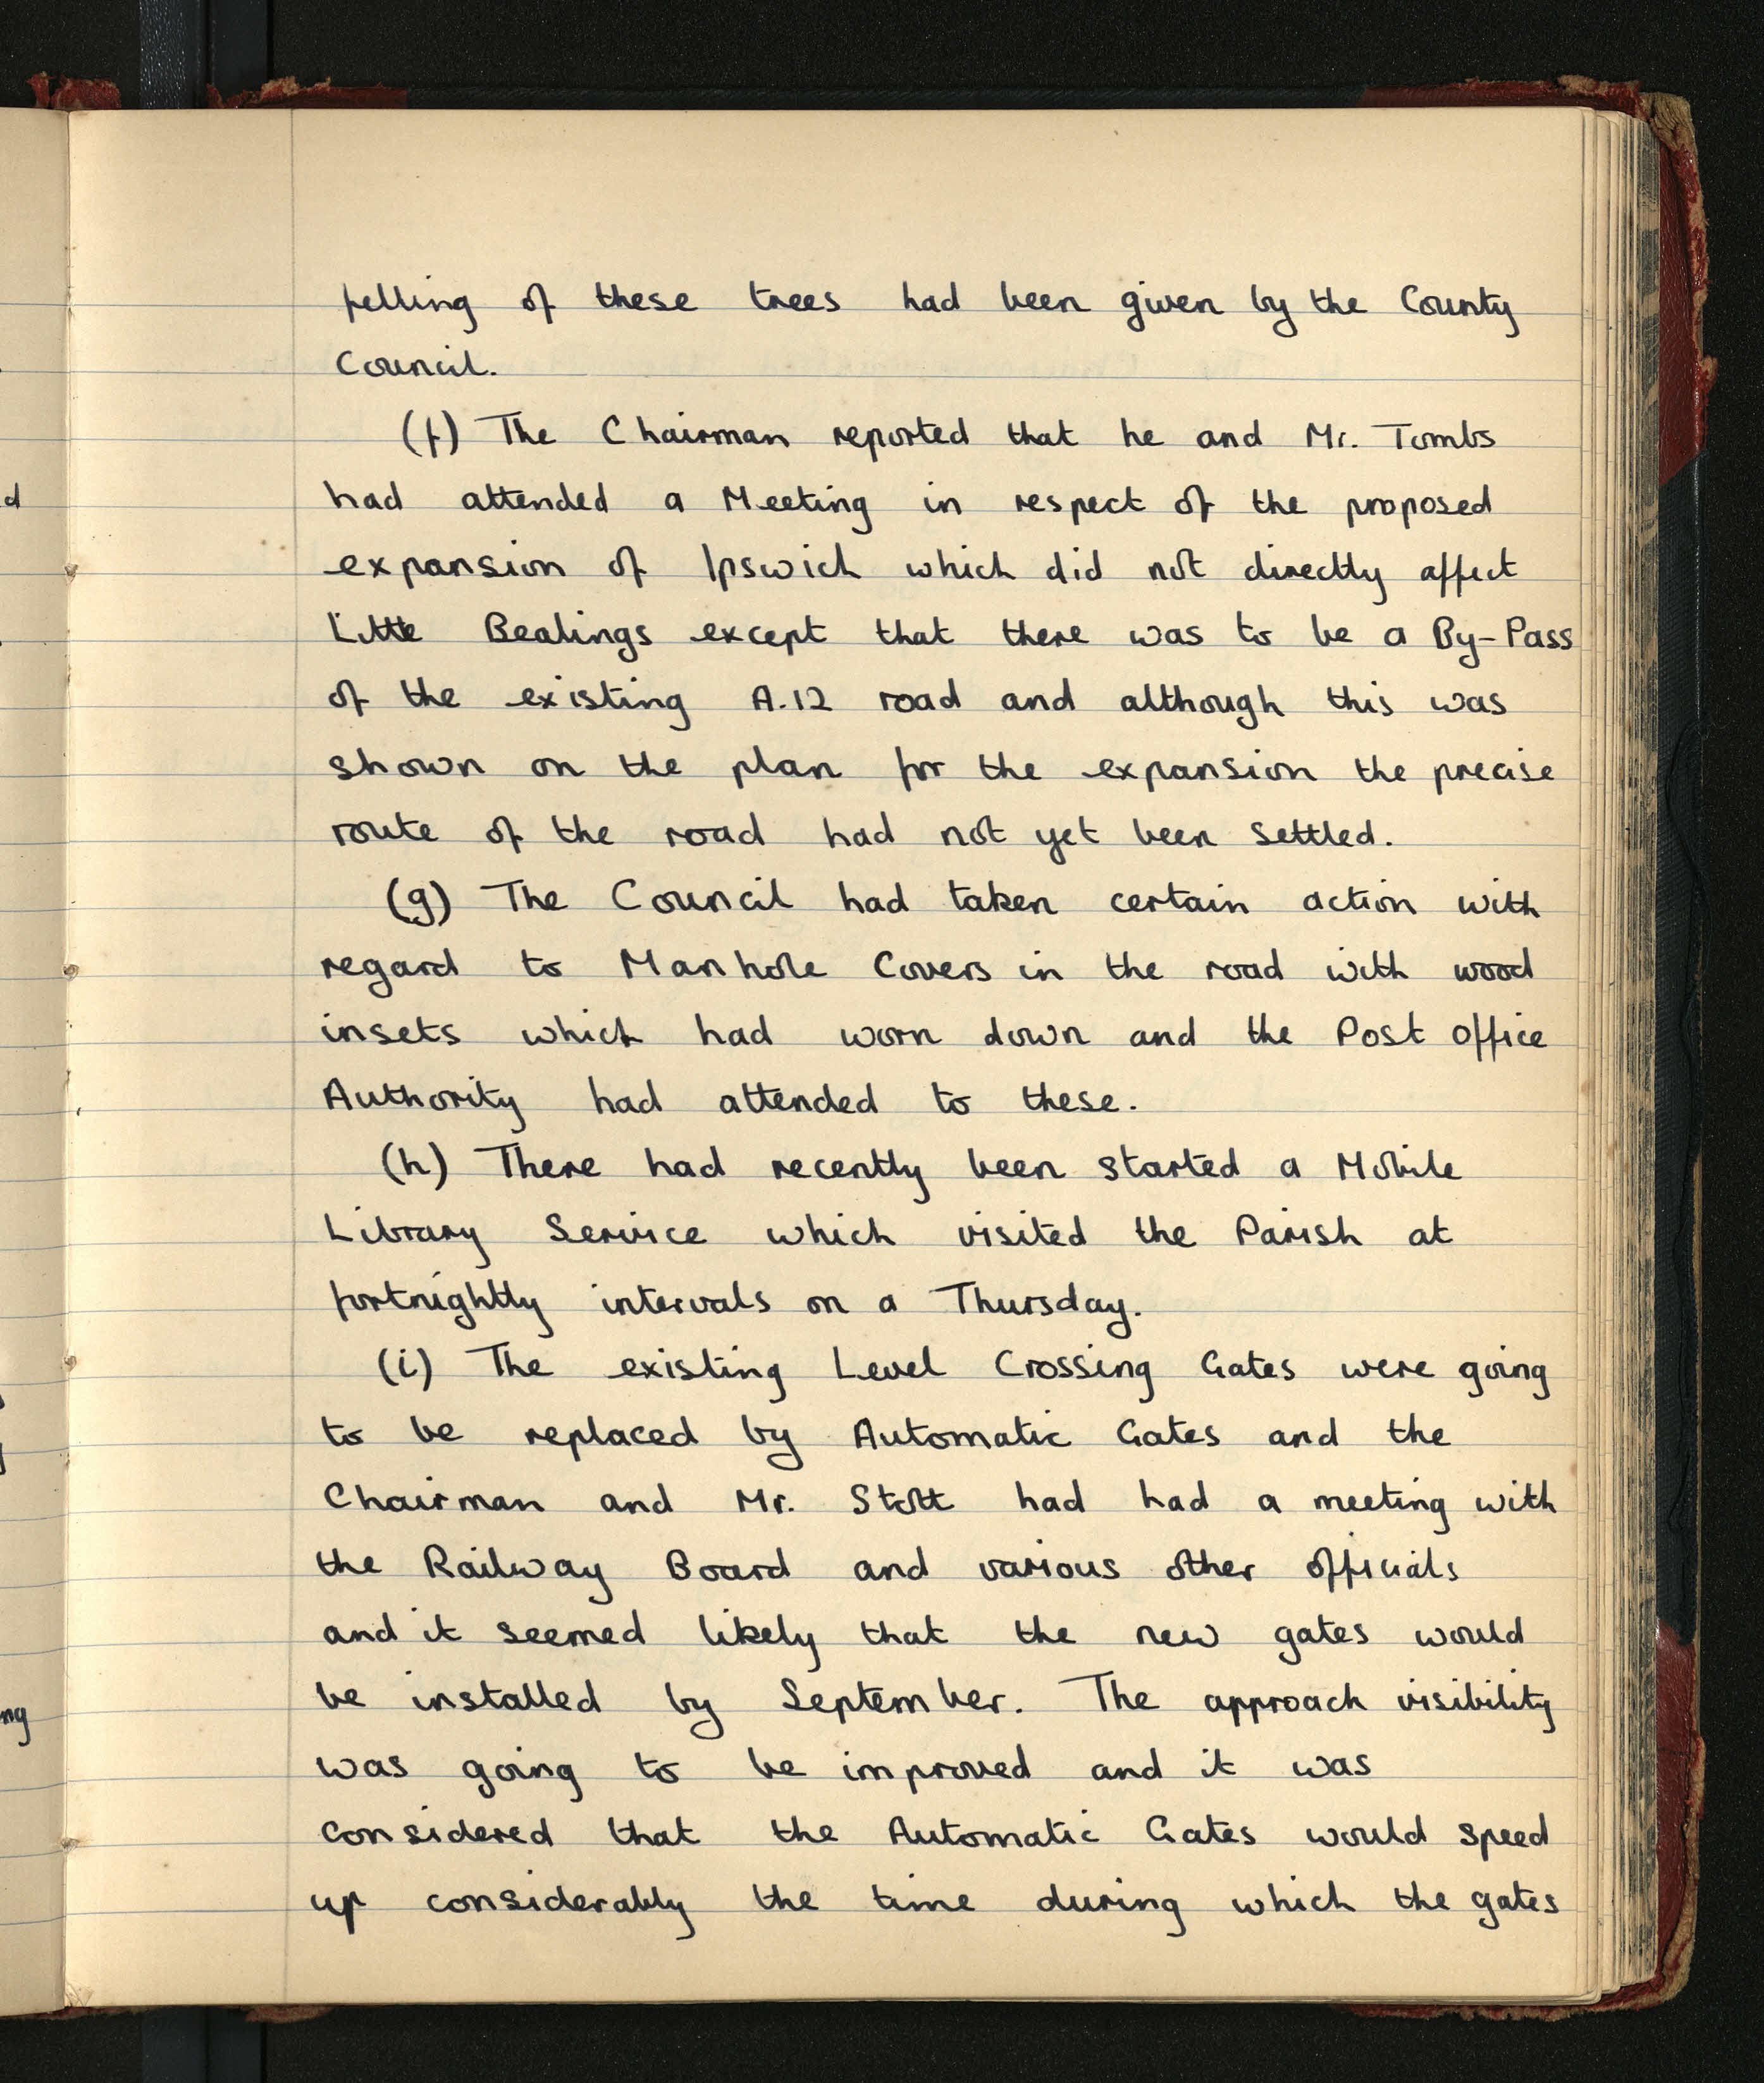 felling of these trees had been given by the County
Council.
(f) The Chairman reported that he and Mr. Tombs
had attended a Meeting in respect of the proposed
expansion of Ipswich which did not directly affect
Little Bealings except that there was to be a By-Pass
of the existing A.12 road and although this was
shown on the plan for the expansion the precise
route of the road had not yet been settled.
(g) The Council had taken certain action with
regard to Manhole Covers in the road with wood
insets which had worn down and the Post Office
Authority had attended to these.
(h) There had recently been started a Mobile
Library Service which visited the Parish at
fortnightly intervals on a Thursday.
(i) The existing Level Crossing Gates were going
to be replaced by Automatic Gates and the
Chairman and Mr. Stott had had a meeting with
the Railway Board and various other officials
and it seemed likely that the new gates would
be installed by September. The approach visibility
was going to be improved and it was
considered that the Automatic Gates would speed
up considerably the time during which the gates